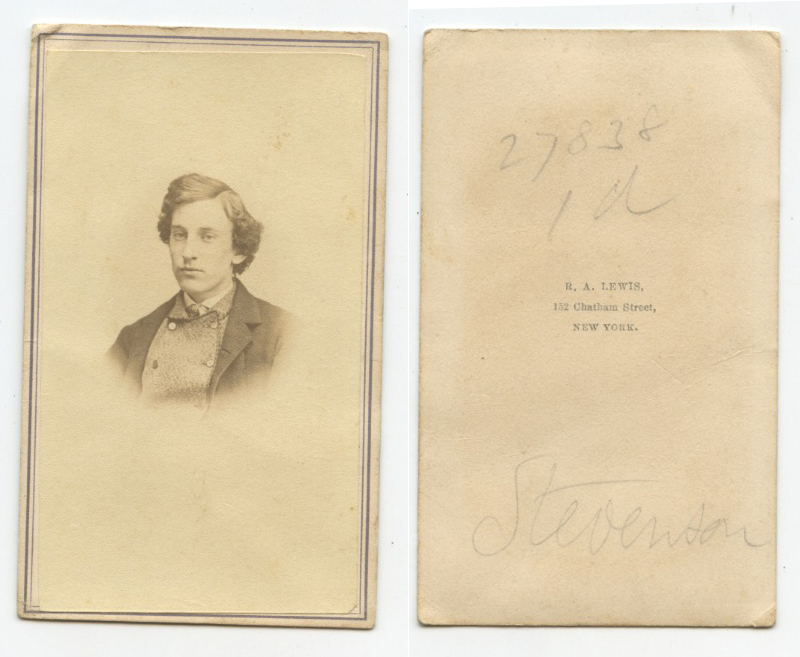 27838
1 d
R. A. LEWIS,
152 Chatham Street,
NEW YORK.
Stevenson